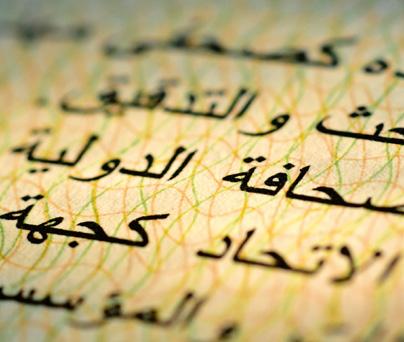 ده كصحفي
حث و التدقيق
صحافة الدولية
الاتحاد كجهة
و المؤسس